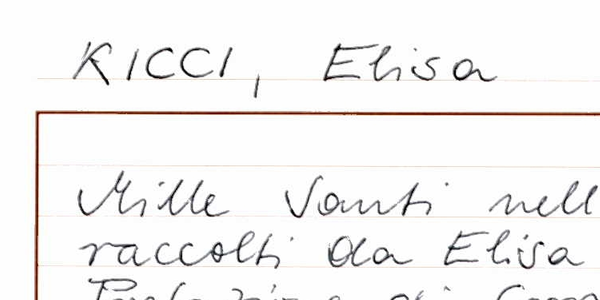 RICCI, Elisa
Mille Santi nell
raccolti da Elisa